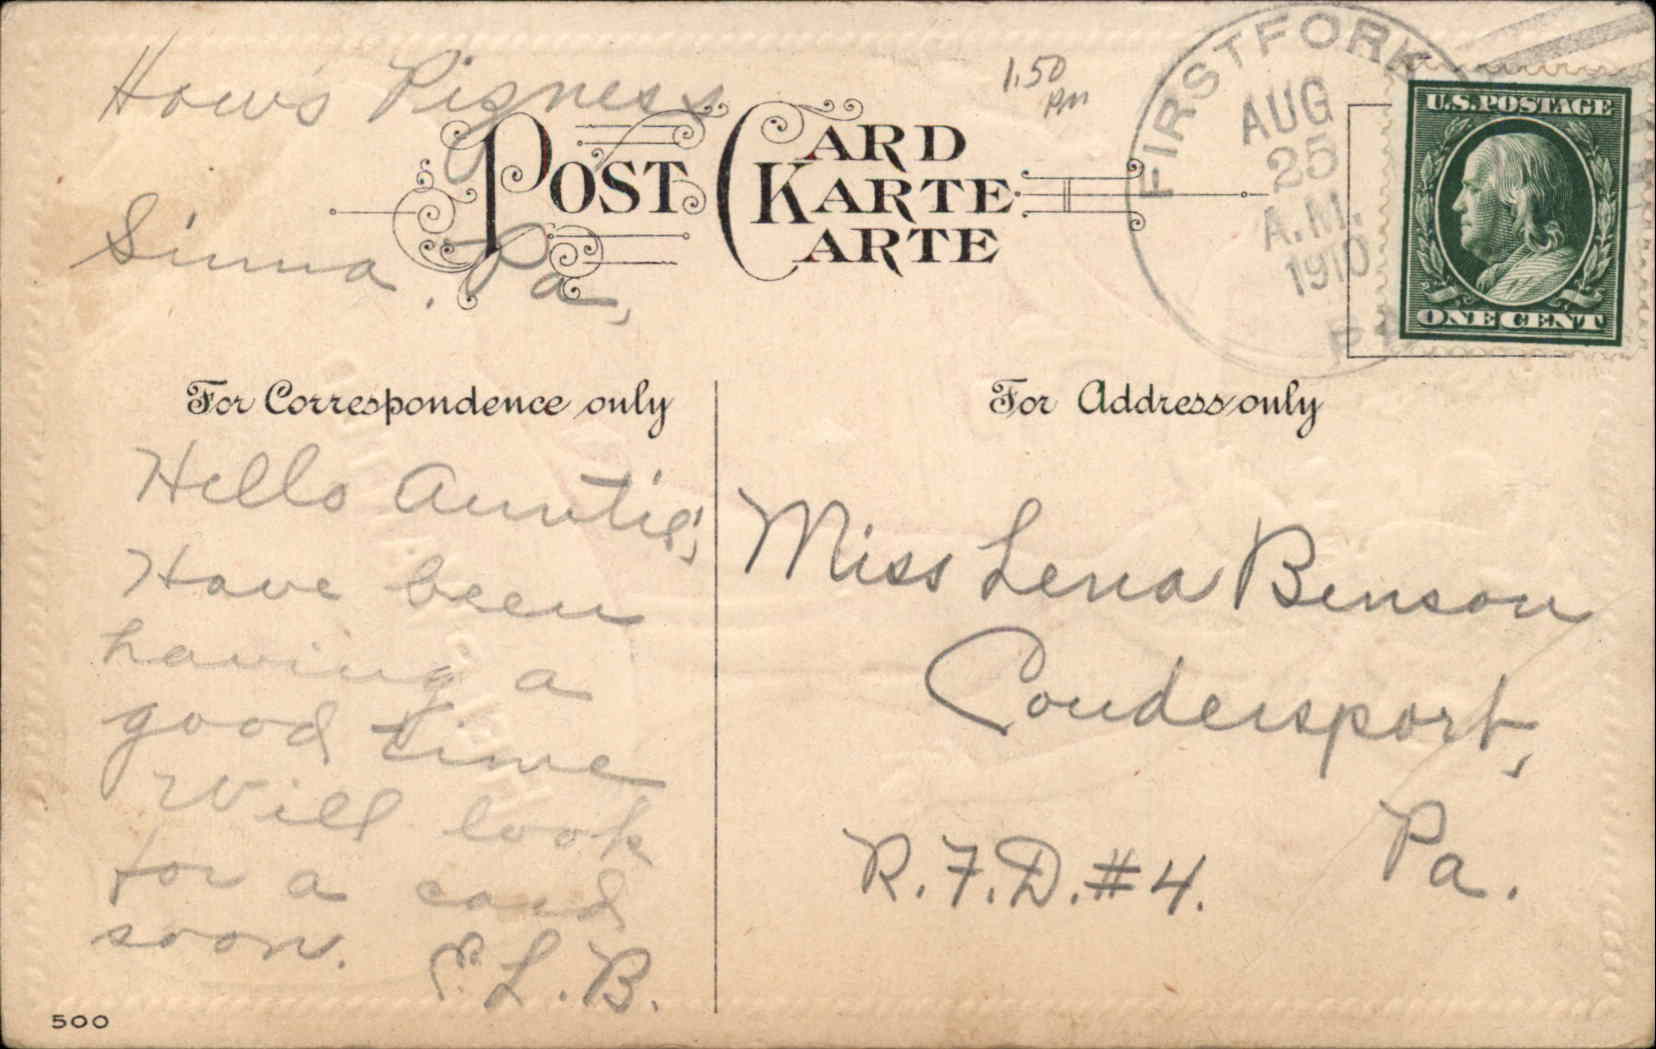 How's Pigness
1.50
PM
FIRST FORK
AUG
25
A.M.
1910
PA
U.S. POSTAGE
ONE CENT
POST CARD
KARTE
CARTE
Sinna. Pa,
For Correspondence only
For Address only
Hello Auntie,
Have been
having a
good time
Will look
for a card
soon. E. L. B.
Miss Lena Benson
Coudersport,
Pa.
R.F.D. #4.
500